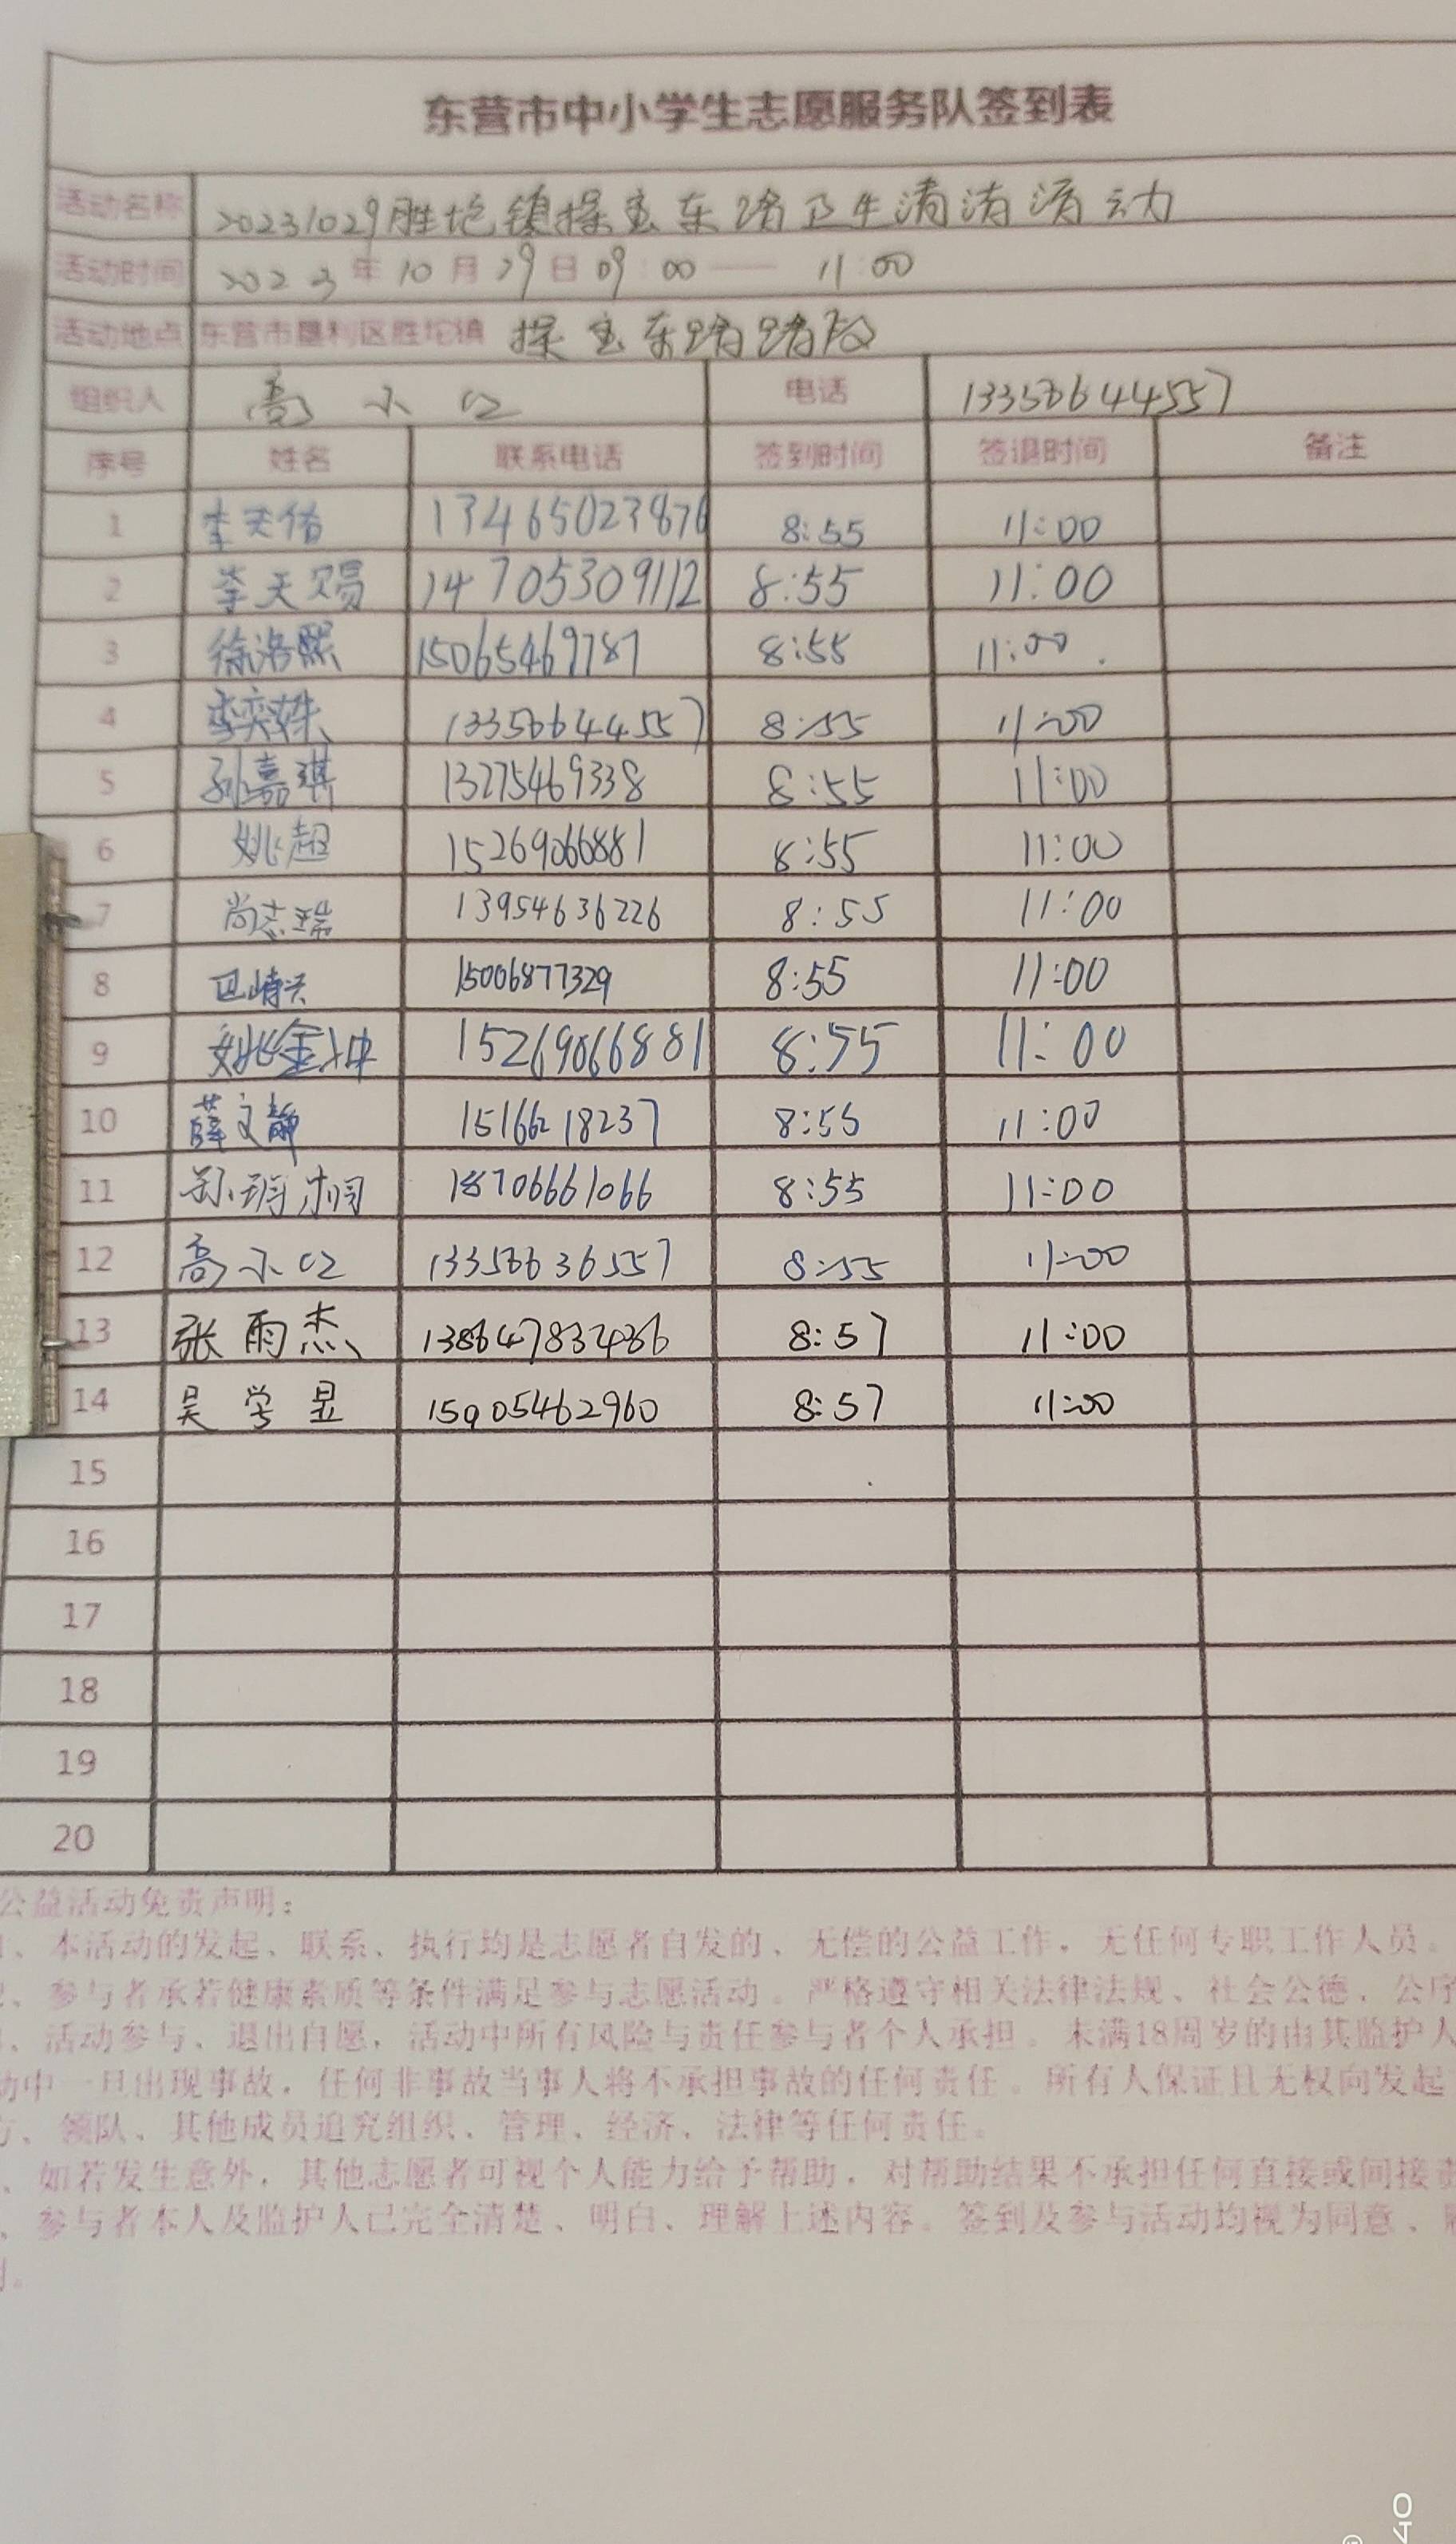 东营市中小学生志愿服务队签到表
活动名称 20231029胜坨镇探宝东路卫生清洁活动
活动时间 2023年10月29日09:00——11:00
活动地点 东营市垦利区胜坨镇 探宝东路路段
组织人 高小红 电话 13356644557
序号 姓名 联系电话 签到时间 签退时间 备注
1 李天佑 13465023876 8:55 11:00
2 李天赐 14705309112 8:55 11:00
3 徐洛熙 15065469787 8:55 11:00
4 李奕姝 13356644557 8:55 11:00
5 孙嘉琪 13275469338 8:55 11:00
6 姚超 15269066881 8:55 11:00
7 尚志瑞 13954636226 8:55 11:00
8 15006877329 8:55 11:00
9 姚金坤 15269066881 8:55 11:00
10 薛文静 15166218237 8:55 11:00
11 孙玥桐 18706661066 8:55 11:00
12 高小红 13356636557 8:55 11:00
13 张雨杰 8:57 11:00
14 吴学昱 15905462960 8:57 11:00
15
16
17
18
19
20
公益活动免责声明：
、本活动的发起、联系、执行均是志愿者自发的、无偿的公益工作，无任何专职工作人员。
、参与者承若健康素质等条件满足参与志愿活动。严格遵守相关法律法规、社会公德、公序
、活动参与、退出自愿，活动中所有风险与责任参与者个人承担。未满18周岁的由其监护人
动中一旦出现事故，任何非事故当事人将不承担事故的任何责任。所有人保证且无权向发起
方、领队、其他成员追究组织、管理、经济、法律等任何责任。
、如若发生意外，其他志愿者可视个人能力给予帮助，对帮助结果不承担任何直接或间接责
、参与者本人及监护人已完全清楚、明白、理解上述内容。签到及参与活动均视为同意、
。
40